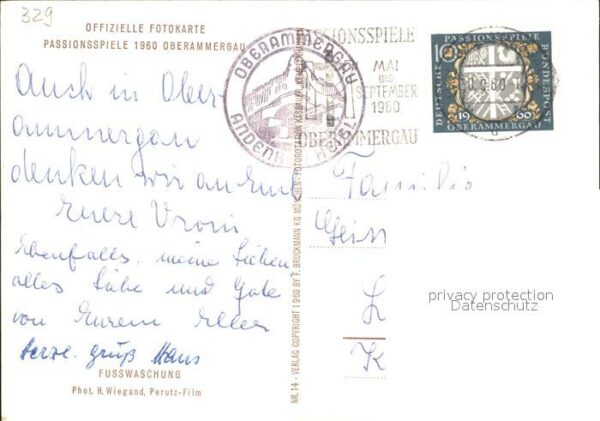 329
OFFIZIELLE FOTOKARTE
PASSIONSSPIELE 1960 OBERAMMERGAU
Auch in Ober-
ammergau
denken wir an Euch
Euere Vroni
Ebenfalls meine Lieben
alles Liebe und Gute
von Eurem
herzl. gruß Hans
FUSSWASCHUNG
Phot. H. Wiegand, Perutz-Film
NR. 14 - VERLAG COPYRIGHT 1960 BY F. BRUCKMANN KG MÜNCHEN
OBERAMMERGAU
PASSIONSSPIELE
MAI
BIS
SEPTEMBER
1960
OBERAMMERGAU
10
PASSIONSSPIELE
DEUTSCHE
BUNDESPOST
1960
OBERAMMERGAU
Familie
Geiss
L
K
privacy protection
Datenschutz